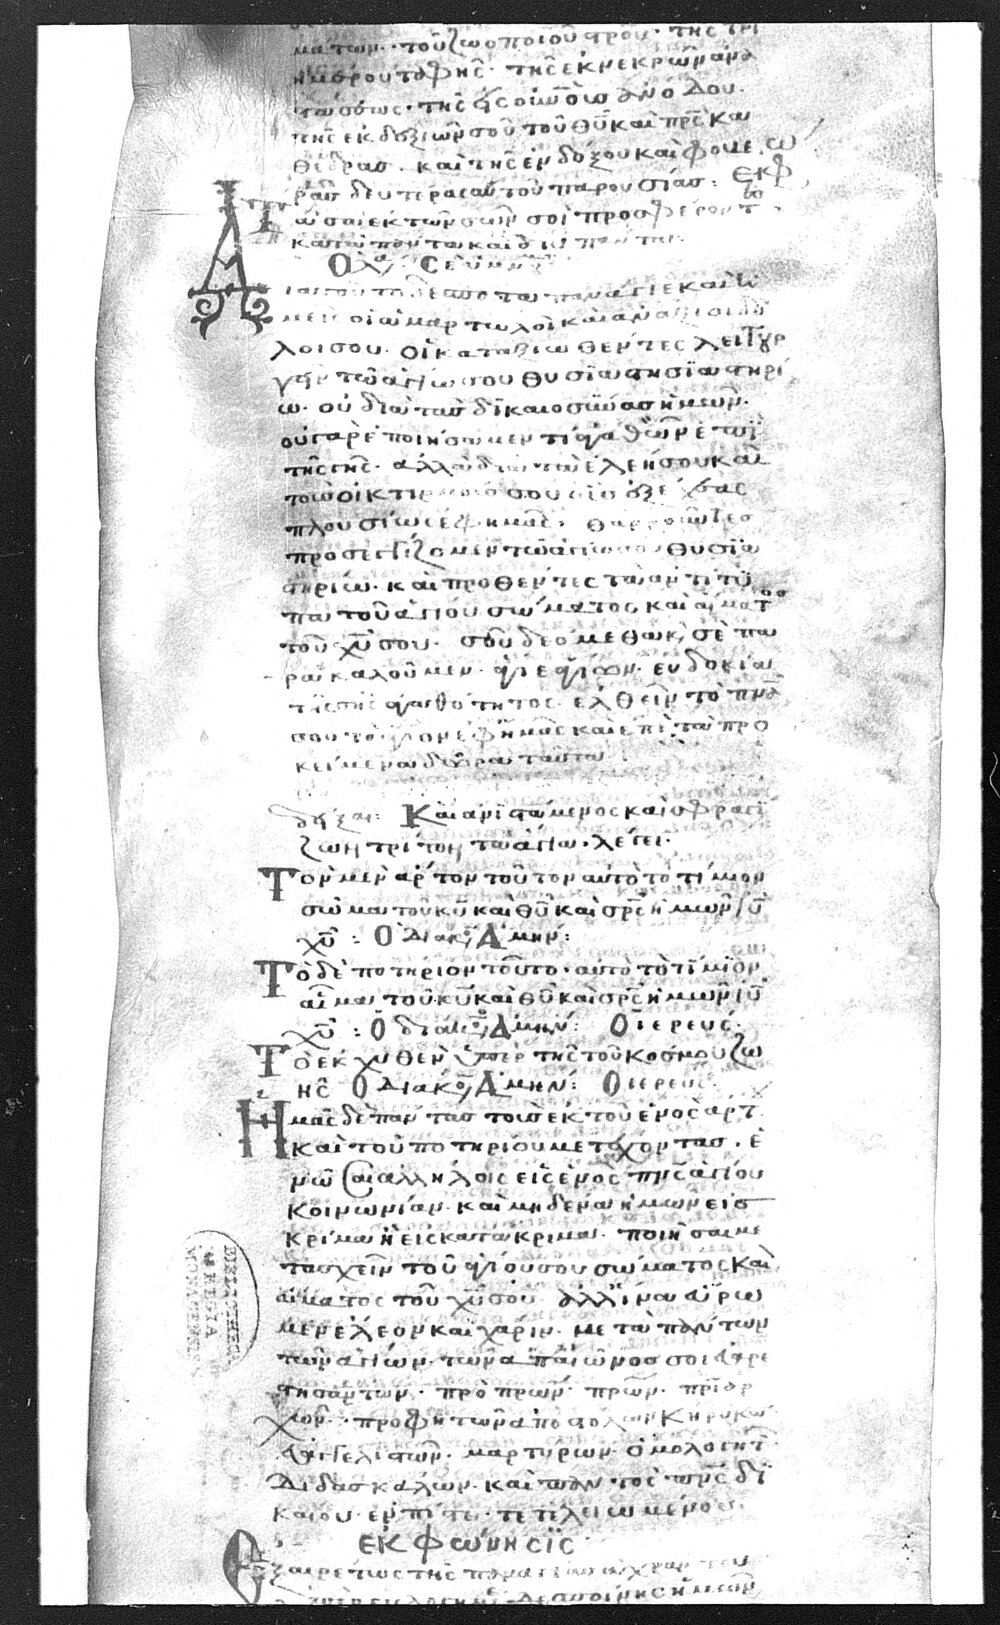 μάτων· τοῦ ζωοποιοῦ σ̅ρ̅ου· τῆς τρι
ημέρου ταφῆς· τῆς ἐκ νεκρῶν ἀνα
στάσεως· τῆς εἰς οὐ̅νο̅ὺς ἀνόδου·
τῆς ἐκ δεξιῶν σοῦ τοῦ θ̅υ̅ καὶ π̅ρ̅ς κα
θέδρας· καὶ τῆς ἐνδόξου καὶ φοβε
ρᾶς δευτέρας αὐτοῦ παρουσίας: ἐκφω
Τὰ σὰ ἐκ τῶν σῶν σοὶ προσφέροντ
κατὰ πάντα καὶ διὰ πάντα:
Ὁ λα Σὲ ὑμν
Διὰ τοῦτο δέσποτα πανάγιε καὶ ἡ
μεῖς οἱ ἁμαρτωλοὶ καὶ ἀνάξιοι δοῦ
λοι σου· οἱ καταξιωθέντες λειτουρ
γεῖν τῶ ἁγίω σου θυσιαστηρί
ω· οὐ διὰ τὰς δικαιοσύνας ἡμῶν·
οὐ γὰρ ἐποιήσαμεν τι ἀγαθὸν ἐπὶ
τῆς γῆς· ἀλλὰ διὰ τὰ ἐλέη σου καὶ
τοὺς οἰκτιρμούς σου οὓς ἐξέχεας
πλουσίως ἐφ ἡμᾶς· θαρροῦντες
προσεγγίζομεν τῶ ἁγίω σου θυσια
στηρίω· καὶ προθέντες τὰ ἀντίτυ
πα τοῦ ἁγίου σώματος καὶ αἵματος
τοῦ χ̅υ̅ σου· σοῦ δεόμεθα κ, σὲ πα
ρακαλοῦμεν· ἅγιε ἁγίων· εὐδοκία
τῆς σῆς ἀγαθότητος· ἐλθεῖν τὸ π̅ν̅α
σου τὸ ἅγιον ἐφ ἡμᾶς καὶ ἐπὶ τὰ προ
κείμενα δῶρα ταῦτα
Καὶ ἀνιστάμενος καὶ σφραγί
ζων τρίτον τὰ ἅγια· λέγει·
Τὸν μὲν ἄρτον τοῦτον αὐτὸ τὸ τίμιον
σῶμα τοῦ κ̅υ̅ καὶ θ̅υ̅ καὶ σ̅ρ̅ς ἡμῶν ι̅υ̅
χ̅υ̅: Ὁ διακο, Ἀμήν:
Τὸ δὲ ποτήριον τοῦτο· αὐτὸ τὸ τίμιον
αἷμα τοῦ κ̅υ̅ καὶ θ̅υ̅ καὶ σ̅ρ̅ς ἡμῶν ι̅υ̅
χ̅υ̅: Ὁ διακο, Ἀμήν: Ὁ ἱερεύς·
Τὸ ἐκχυθὲν ὑπὲρ τῆς τοῦ κόσμου ζω
ῆς Ὁ διακο, Ἀμήν: Ὁ ἱερεύς·
Ἡμᾶς δὲ πάντας τοὺς ἐκ τοῦ ἑνὸς ἄρτ
καὶ τοῦ ποτηρίου μετέχοντας· ἑ
νῶσαι ἀλλήλοις εἰς ἑνὸς π̅ν̅ς ἁγίου
κοινωνίαν· καὶ μηδένα ἡμῶν εἰς
κρίμα ἢ εἰς κατάκριμα· ποιῆσαι με
τασχεῖν τοῦ ἁγίου σου σώματος καὶ
αἵματος τοῦ χ̅υ̅ σου· ἀλλ ἵνα εὕρω
μεν ἔλεον καὶ χάριν· μετὰ πάντων
τῶν ἁγίων· τῶν ἀπ αἰῶνος σοι εὐαρε
στησάντων· προπ̅ρ̅ων· π̅ρ̅ων· π̅ρ̅ιαρ
χῶν· προφητῶν ἀποστόλων κηρύκω
εὐαγγελιστῶν· μαρτύρων· ὁμολογητ
διδασκάλων· καὶ παντὸς π̅ν̅ς δι
καίου· ἐν πίστει τετελειωμένου·
ἐκφώνησις
Ἐξαιρέτως τῆς παναγίας ἀχράντου
ὑπερευλογημε δεσποίνης ἡμῶν
BIBLIOTHECA
REGIA
MONACENSIS